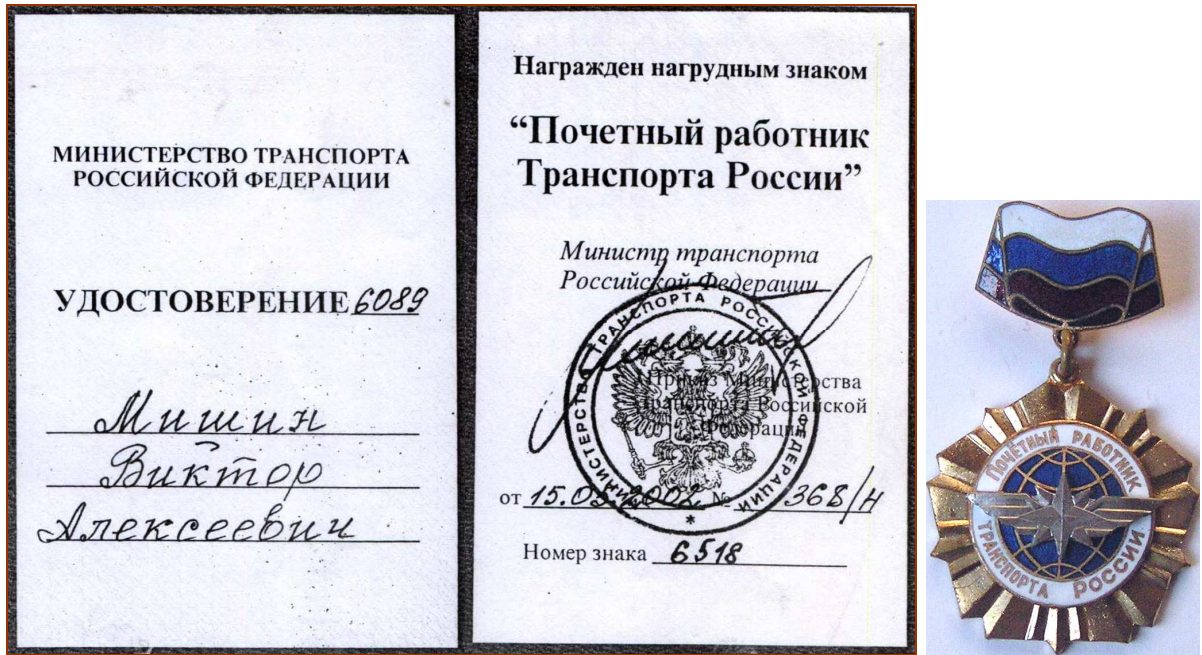 МИНИСТЕРСТВО ТРАНСПОРТА
РОССИЙСКОЙ ФЕДЕРАЦИИ
УДОСТОВЕРЕНИЕ 6089
Мишин
Виктор
Алексеевич
Награжден нагрудным знаком
“Почетный работник
Транспорта России”
Министр транспорта
Российской Федерации
МИНИСТЕРСТВО ТРАНСПОРТА РОССИЙСКОЙ ФЕДЕРАЦИИ *
Приказ Министерства
транспорта Российской
Федерации
от 15.05.2002 № 368/н
Номер знака 6518
ПОЧЁТНЫЙ РАБОТНИК
ТРАНСПОРТА РОССИИ